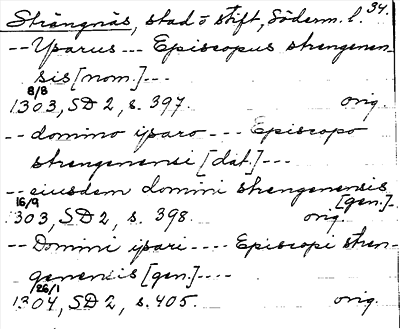 Strängnäs, stad o stift, Söderm. l. 34.
-- Ysarus --- Episcopus strengenen-
sis [nom.] ---
8/8
1303, SD 2, s. 397. orig.
-- domino ysaro --- Episcopo
strengenensi [dat.] ---
-- eiusdem domini strengenensis
[gen.]-
16/9
303, SD 2, s. 398. orig.
-- Domini ysari ---- Episcopi stren-
genensis [gen.] ----
26/1
1304, SD 2, s. 405. orig.